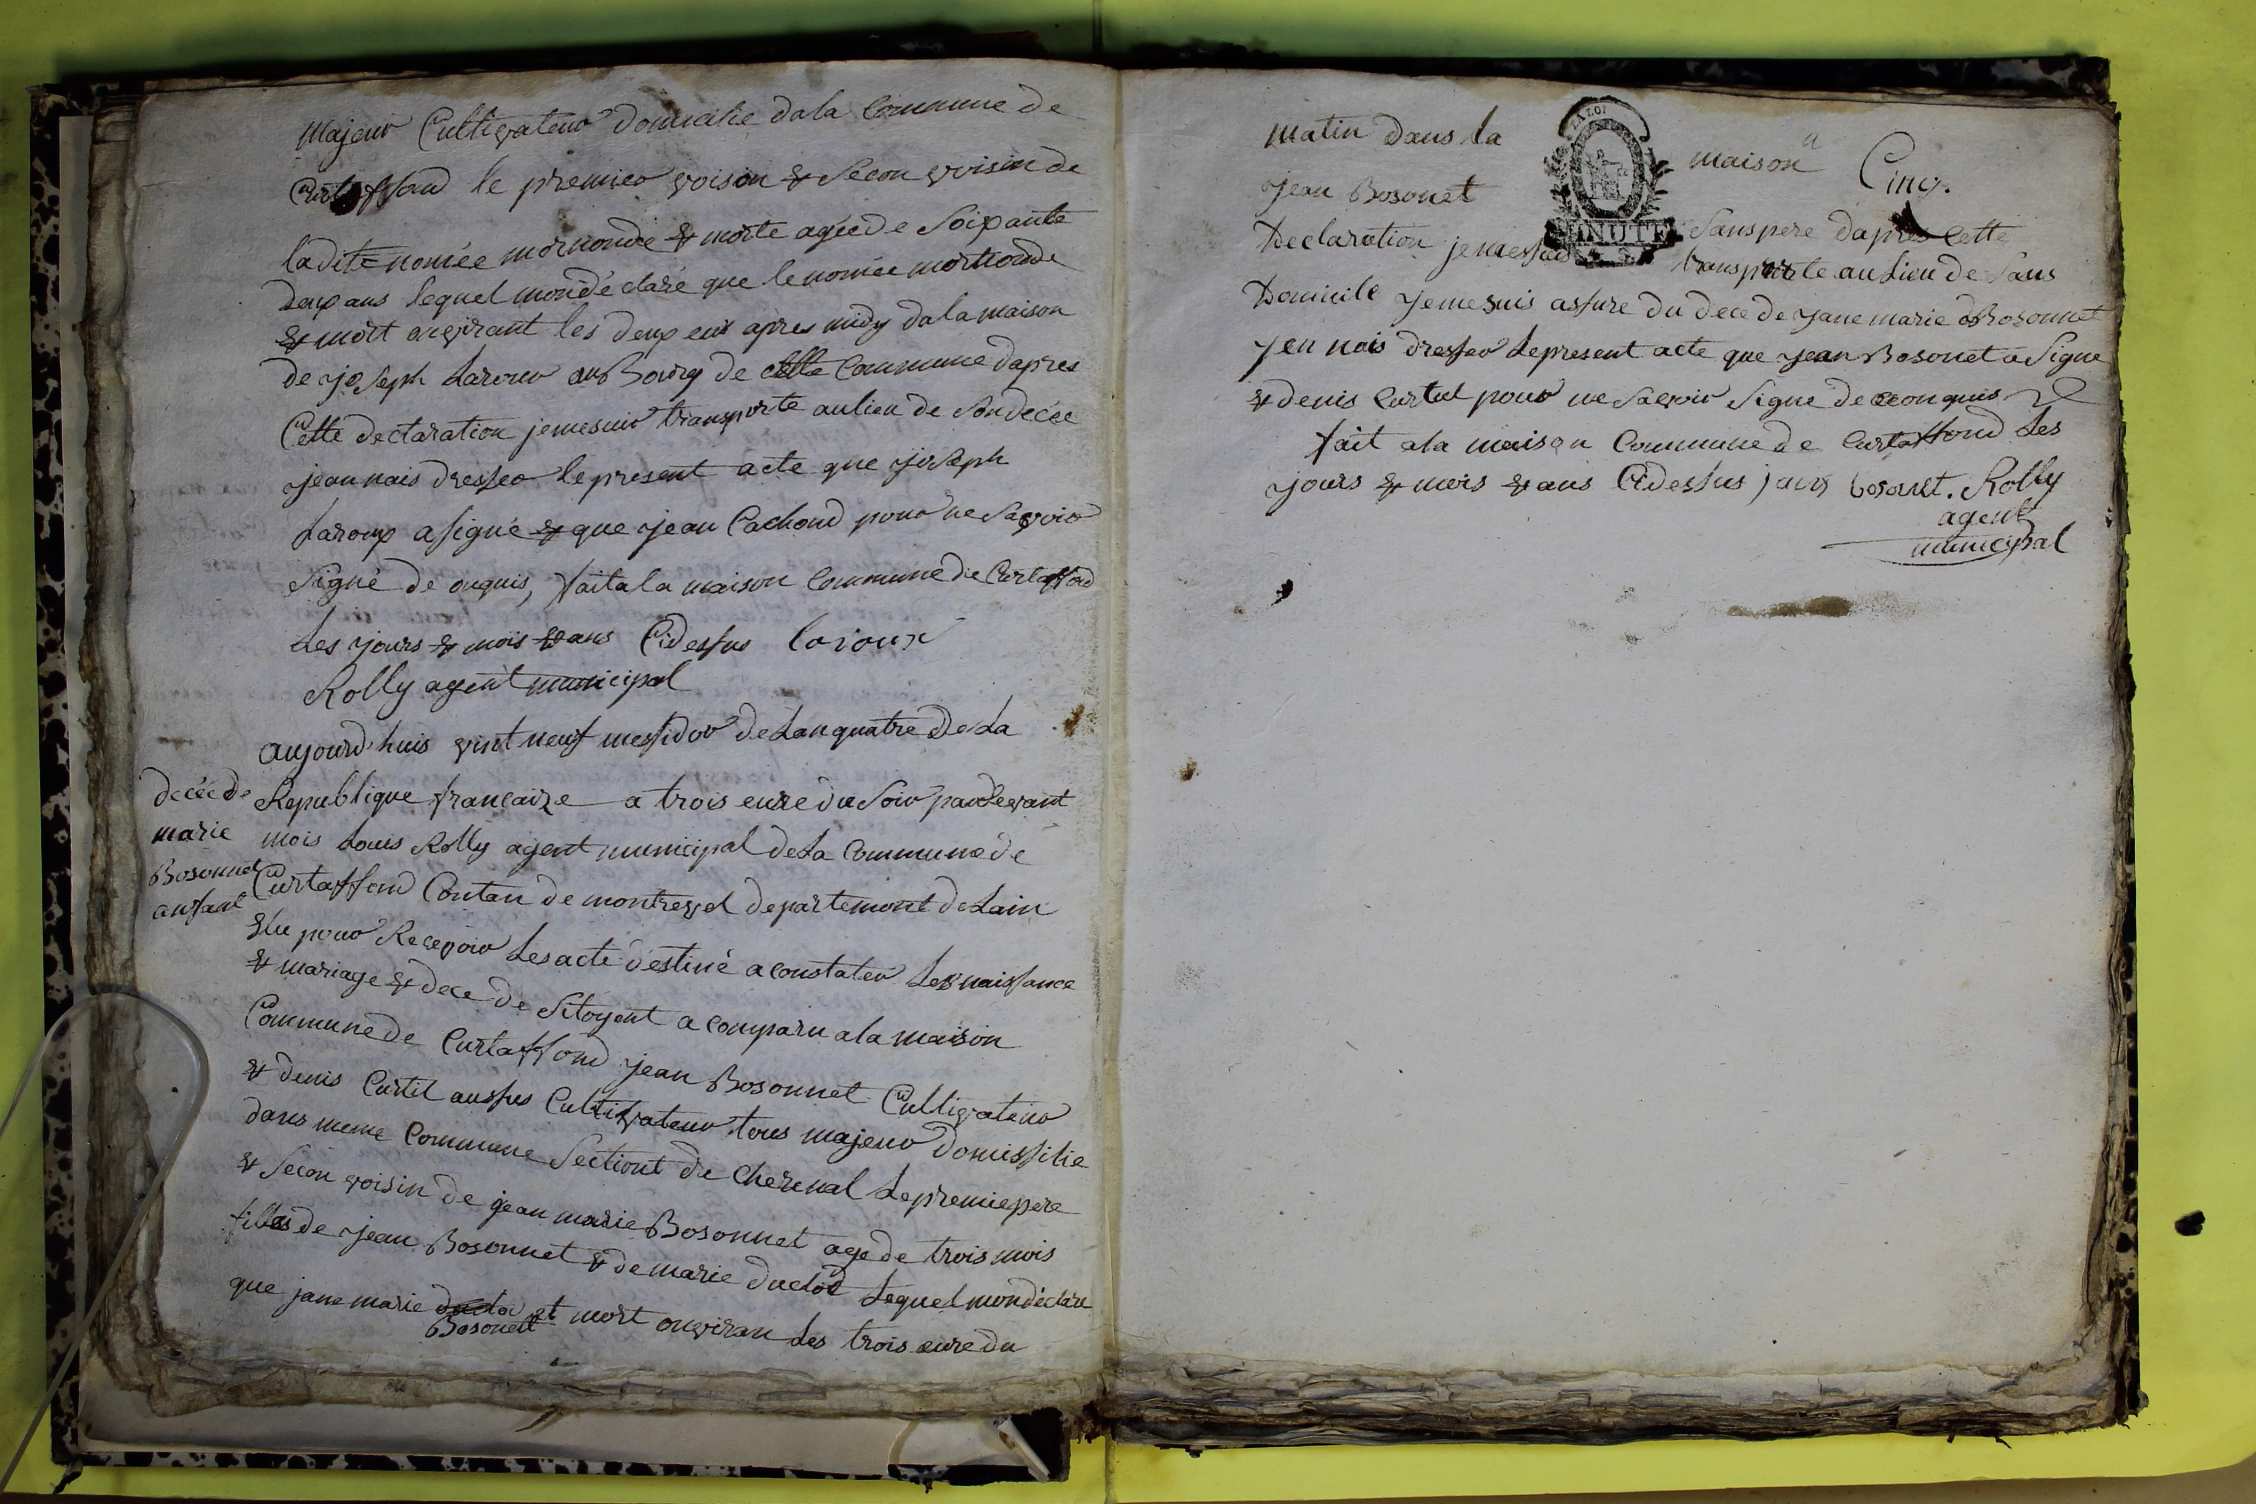 Majeur Cultivateur domicilie dala Commune de
Curtaffond le premier voison & Secon voisin de
ladite nomée mornonde & morte agée de Soixante
deux ans lequel mondéclaré que le nomée mornonde
& mort anvirant les deux eur apres midy dala maison
de joseph Laroux au Bourg de cette Commune dapres
Cette declaration jemesuir transporte aulieu de Son decée
jeannais dresser le present acte que joseph
Laroux a signé & que jean Cachond pour ne Savoir
Signé de onquis, fait a la maison Commune de Curtaffond
Les jours & mois & ans Cidessus laroux
Rolly agent municipal
aujourd'huis vint neuf messidor de Lan quatre de La
decée de
marie
Bosonnet
anfant
Republique francaize a trois eure du Soir pardevant
mois Louis Rolly agent municipal de La Commune de
Curtaffond Contan de montrevel departement de Lain
Elu pour Recevoir Les acte destiné a constater Les naissance
& mariage & dece de Sitoyent a comparu a la maison
Commune de Curtaffond jean Bosonnet Cultivateur
& denis Curtil aussus Cultivateur tous majeur domissilie
dans meme Commune Sectiont de Cherinal Le premie pere
& Secon voisin de jean marie Bosonnet age de trois mois
filles de jean Bosonnet & de marie duclos Lequel mondéclare
que jane marie duclos et mort onviran Les trois eure du
Bosonett
matin dans la maison a Cinq.
LA LOI
MINUTE
jean Bosonet Sanspere dapres Cette
Declaration jemessuis transporte au Lieu de Sans
Domicile jemesuis assure du dece de jane marie Bosonnet
jen nais dresser Lepresent acte que jean Bosonet a Signe
& denis Curtil pour ne Savoir Signe de ceonquis
fait ala maison Commune de Curtaffond Les
jours & mois & ans Cidessus jans bosonet. Rolly
agent
municipal